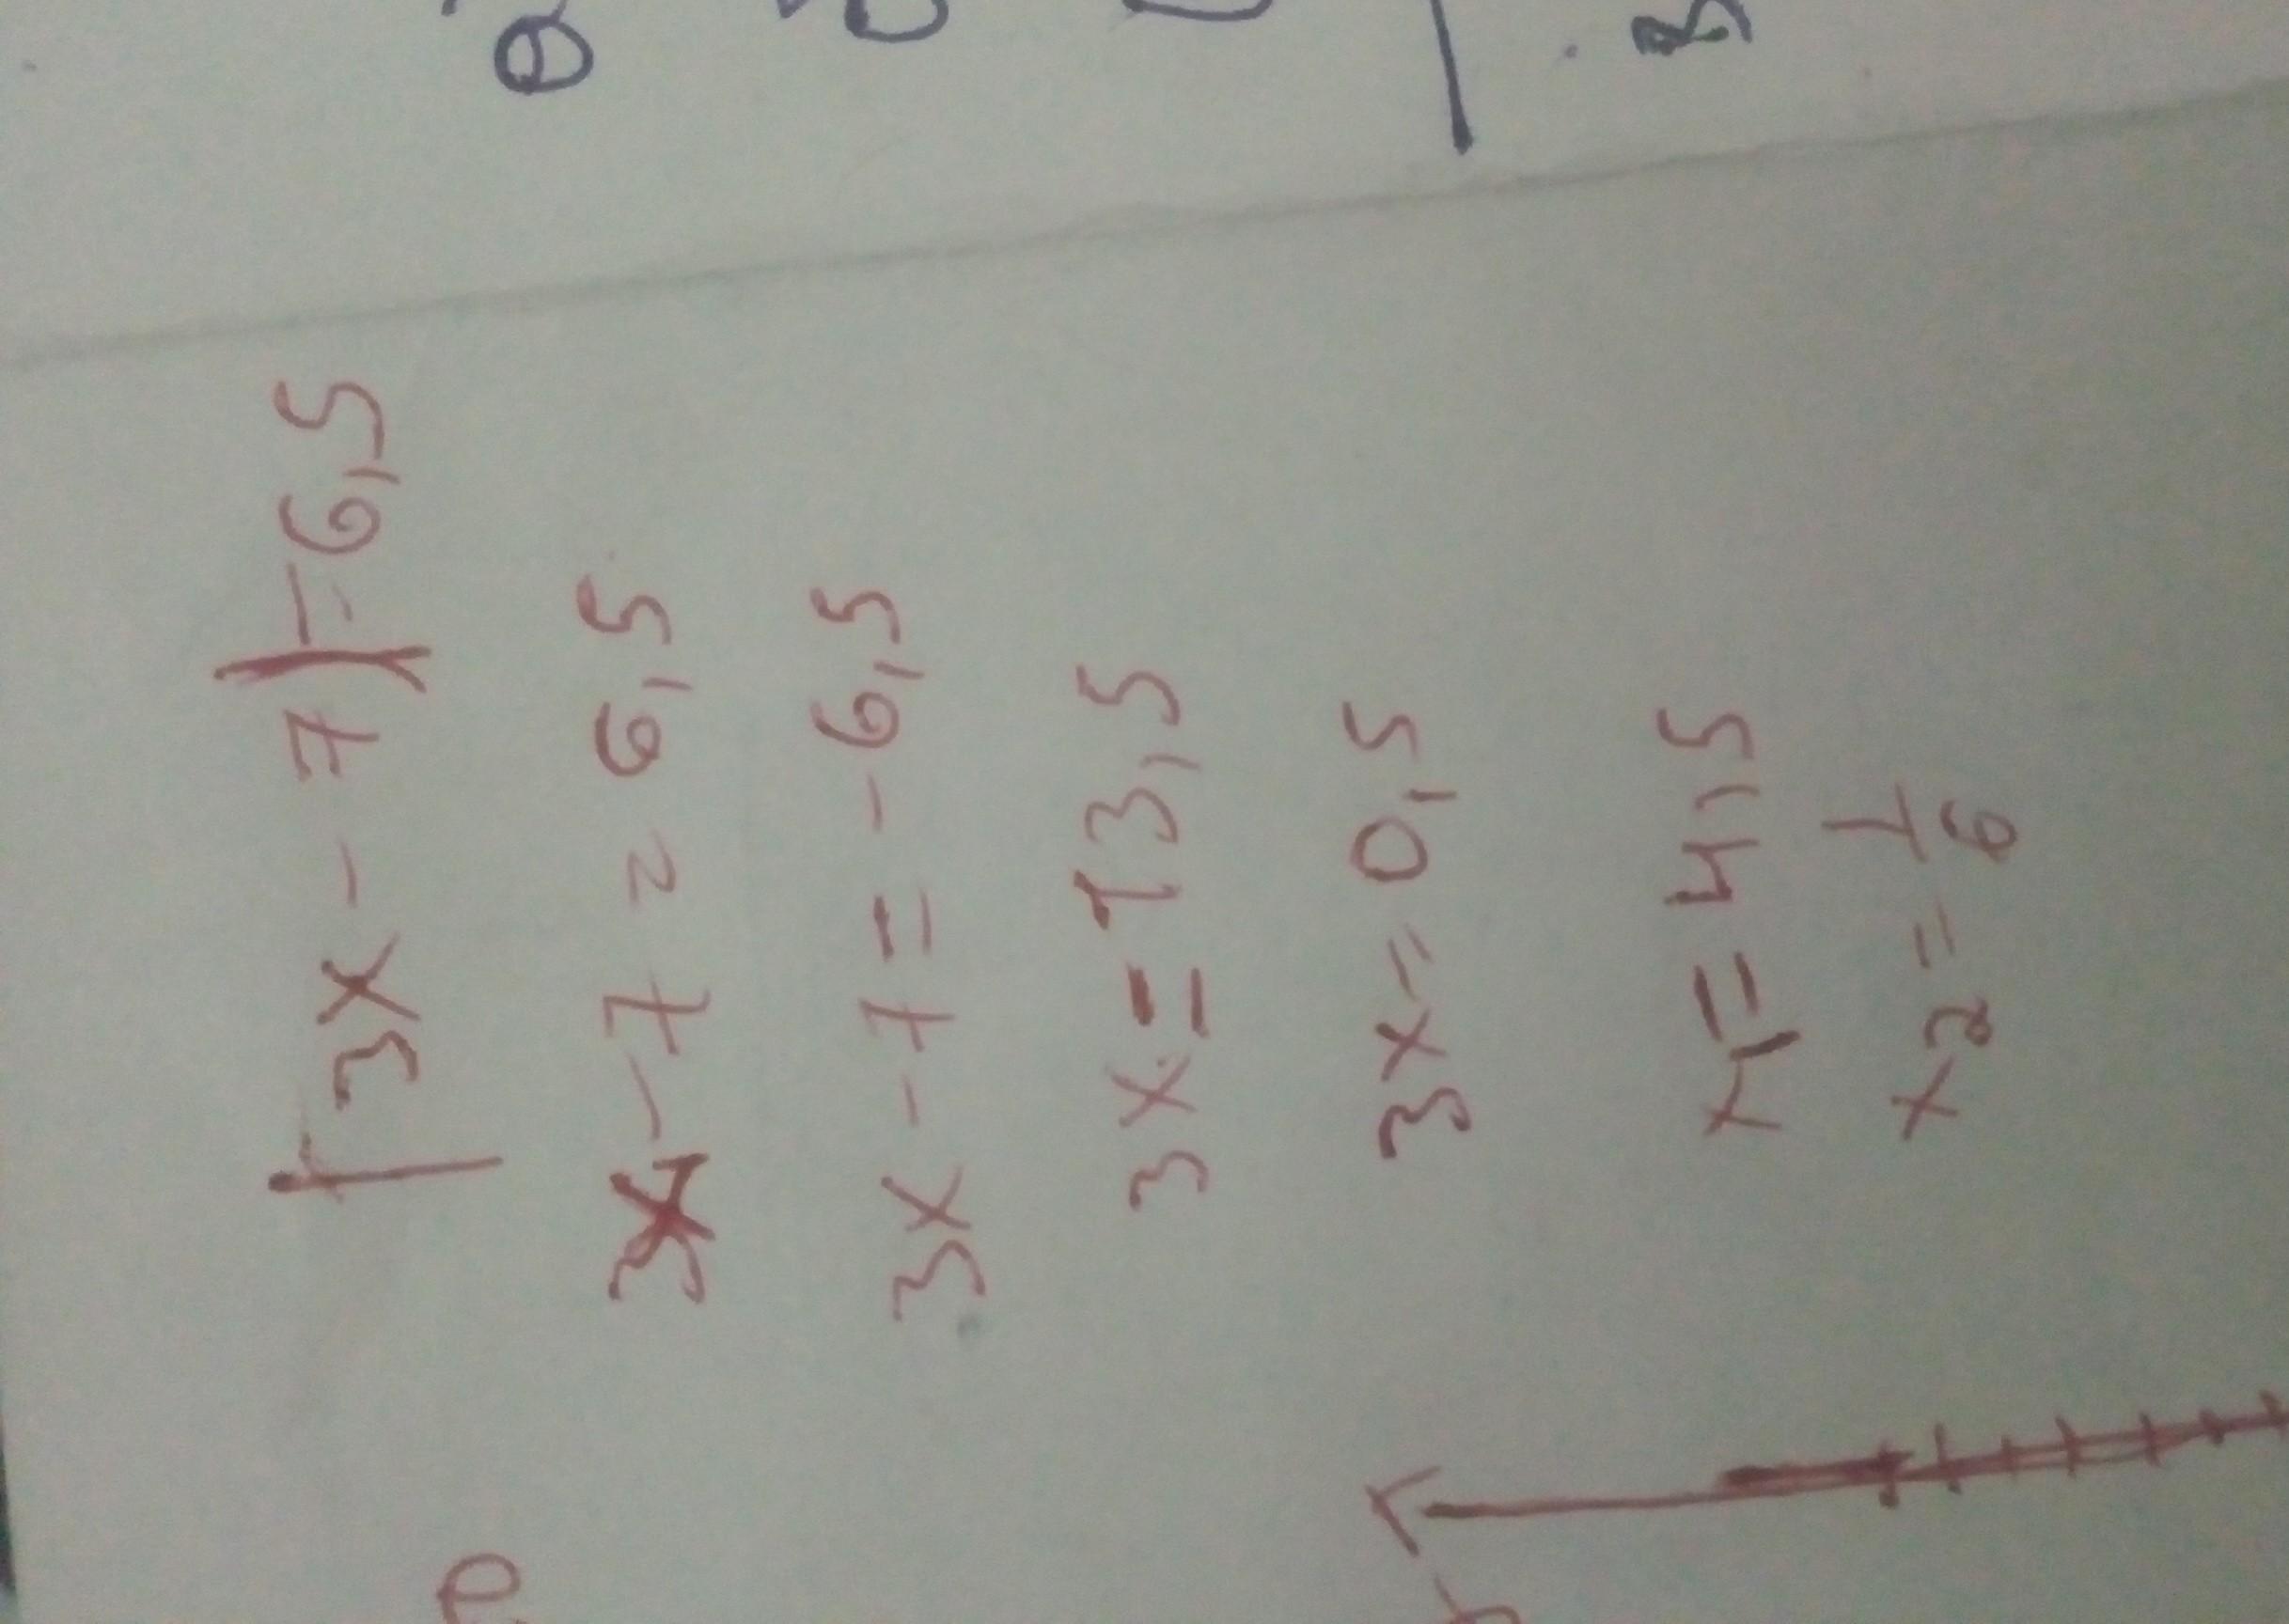 |3x - 7| = 6,5
3x - 7 = 6,5
3x - 7 = - 6,5
3x = 13,5
3x = 0,5
x₁ = 4,5
x₂ = 1/6